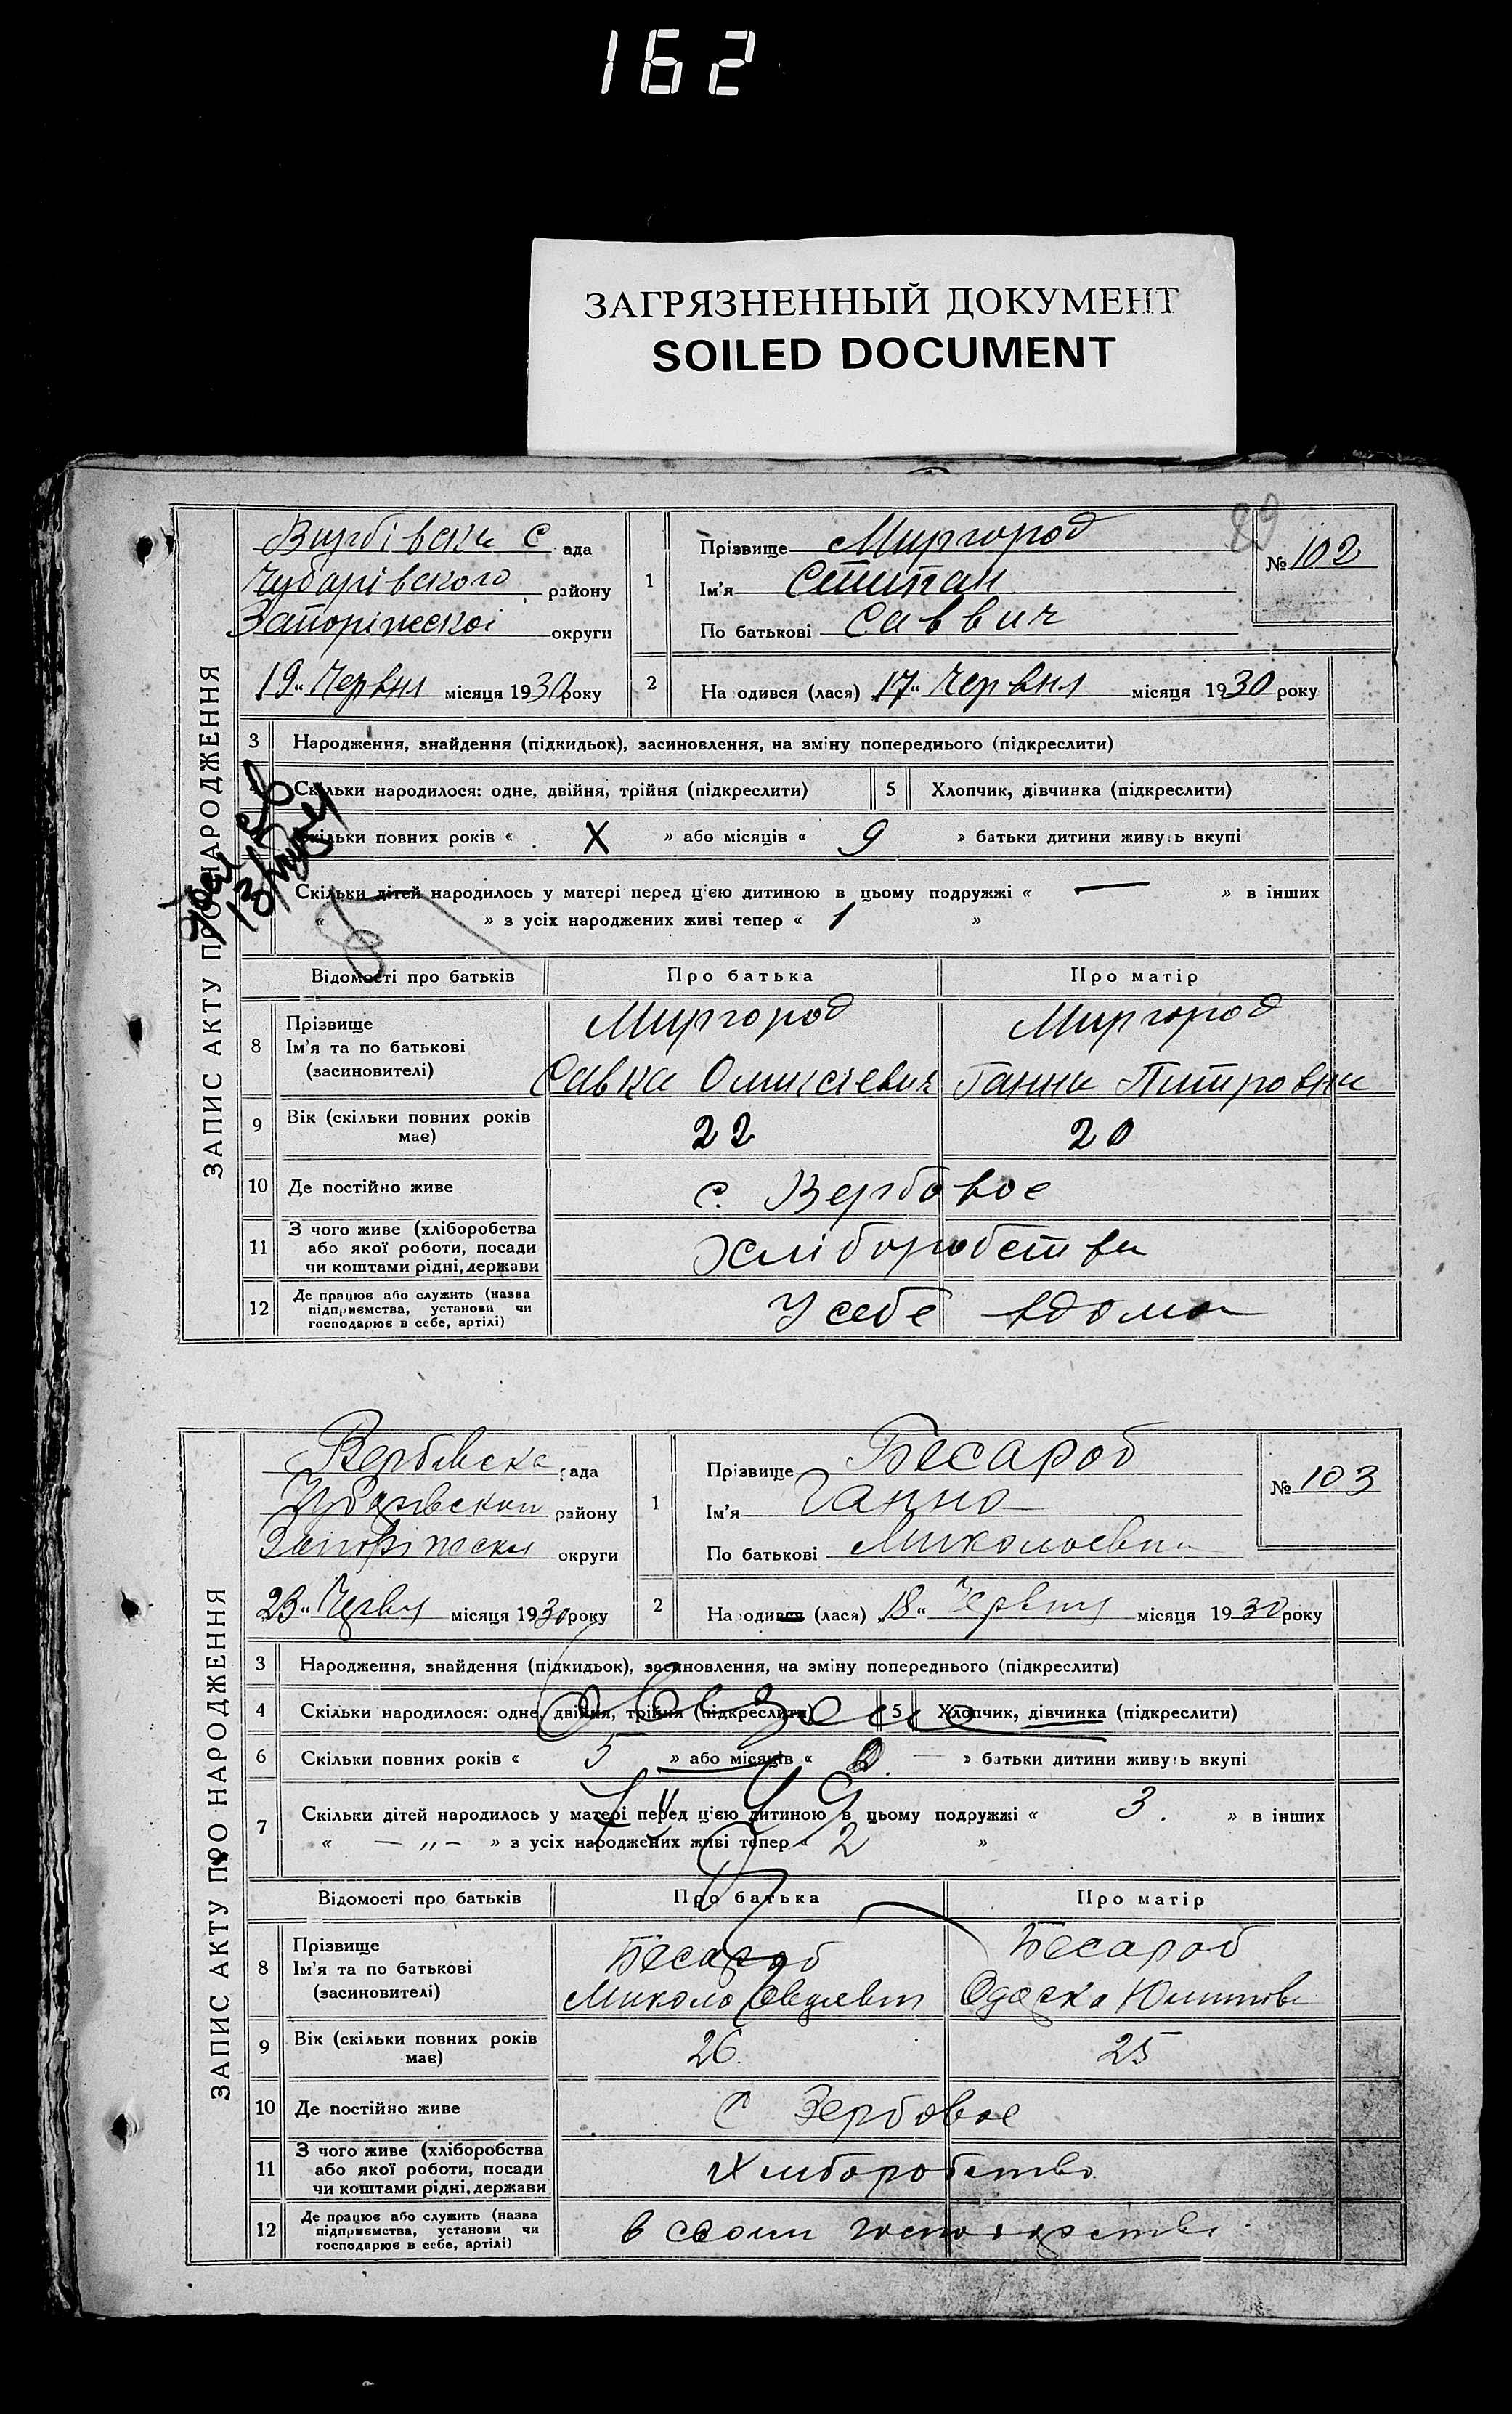 162
ЗАГРЯЗНЕННЫЙ ДОКУМЕНТ
SOILED DOCUMENT
89
ЗАПИС АКТУ ПРО НАРОДЖЕННЯ
Вирбівска С ада
Чубарівского району
Запоріжскої округи
19 " Червня місяця 1930 року
1 Прізвище Миргород
Ім'я Стипан
По батькові Саввич
№ 102
2 На одився (лася) 17 " Червня місяця 1930 року
3 Народження, знайдення (підкидьок), засиновлення, на зміну попереднього (підкреслити)
Скільки народилося: одне, двійня, трійня (підкреслити) 5 Хлопчик, дівчинка (підкреслити)
кільки повних років « X » або місяців « 9 » батьки дитини живуть вкупі
Скільки дітей народилось у матері перед цією дитиною в цьому подружжі « — » в інших
« » з усіх народжених живі тепер « 1 »
85
Відомості про батьків Про батька Про матір
8 Прізвище Ім'я та по батькові (засиновителі)
Миргород Миргород
Савка Ганна Питровна
9 Вік (скільки повних років має) 22 20
10 Де постійно живе с. Вербовое
11 З чого живе (хліборобства або якої роботи, посади чи коштами рідні, держави Хліборобства
12 Де працює або служить (назва підприємства, установи чи господарює в себе, артілі) У себе вдома
ЗАПИС АКТУ ПРО НАРОДЖЕННЯ
Вербівска ада
району
округи
23 " Червня місяця 1930 року
1 Прізвище Бесараб
Ім'я Ганна
По батькові Миколаевна
№ 103
2 На одився (лася) 18 " Червня місяця 1930 року
3 Народження, знайдення (підкидьок), засиновлення, на зміну попереднього (підкреслити)
4 Скільки народилося: одне, двійня, трійня (підкреслити) 5 Хлопчик, дівчинка (підкреслити)
6 Скільки повних років « 5 » або місяців « — » батьки дитини живуть вкупі
7 Скільки дітей народилось у матері перед цією дитиною в цьому подружжі « 3. » в інших
« — „ — » з усіх народжених живі тепер « 2 »
Відомості про батьків Про батька Про матір
8 Прізвище Ім'я та по батькові (засиновителі)
Бесараб Бесараб
Микола Одарка
9 Вік (скільки повних років має) 26. 25
10 Де постійно живе С Вербовое
11 З чого живе (хліборобства або якої роботи, посади чи коштами рідні, держави Хлиборобство
12 Де працює або служить (назва підприємства, установи чи господарює в себе, артілі) в своим господарстви